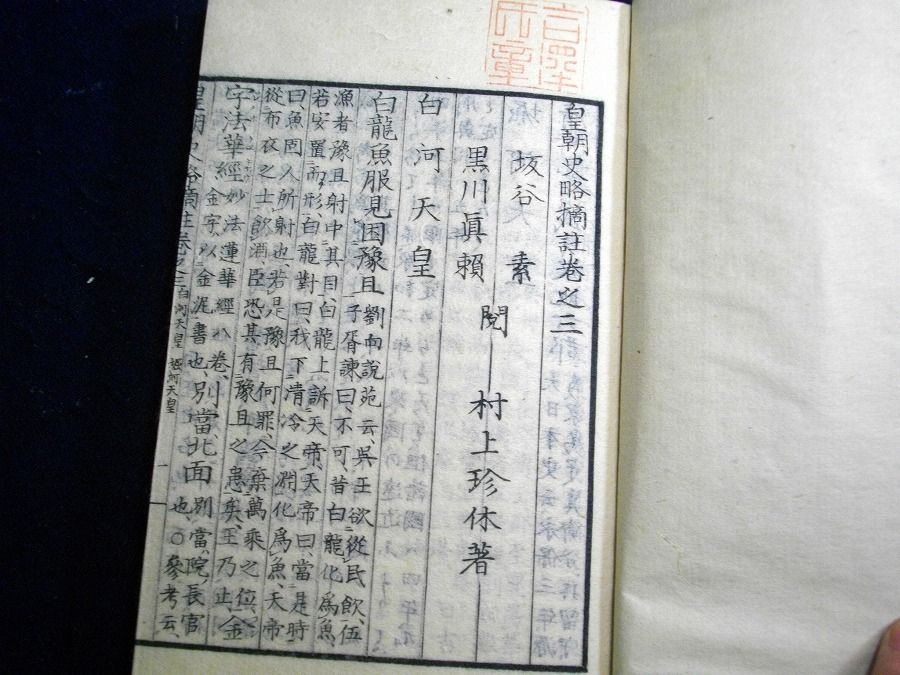 皇朝史略摘註卷之三
坂谷 素
黒川眞賴
閲 村上珍休著
白河天皇
白龍魚服見困豫且 劉向說苑云、吳王欲從民飲、伍
子胥諫曰、不可昔白龍化爲魚、
漁者豫且射中其目、白龍上訴天帝、天帝曰、當是時
若安置而形、白龍對曰、我下清冷之淵化爲魚、天帝
曰、魚固人所射也、若是豫且何罪、今棄萬乘之位、
從布衣之士飲酒、臣恐其有豫且之患矣、王乃止 金
字法華經 妙法蓮華經八卷、
金字、以金泥書也、
別當北面 別當、院長官
也、〇參考云、
皇朝史略摘註卷之三 白河天皇 堀河天皇 一